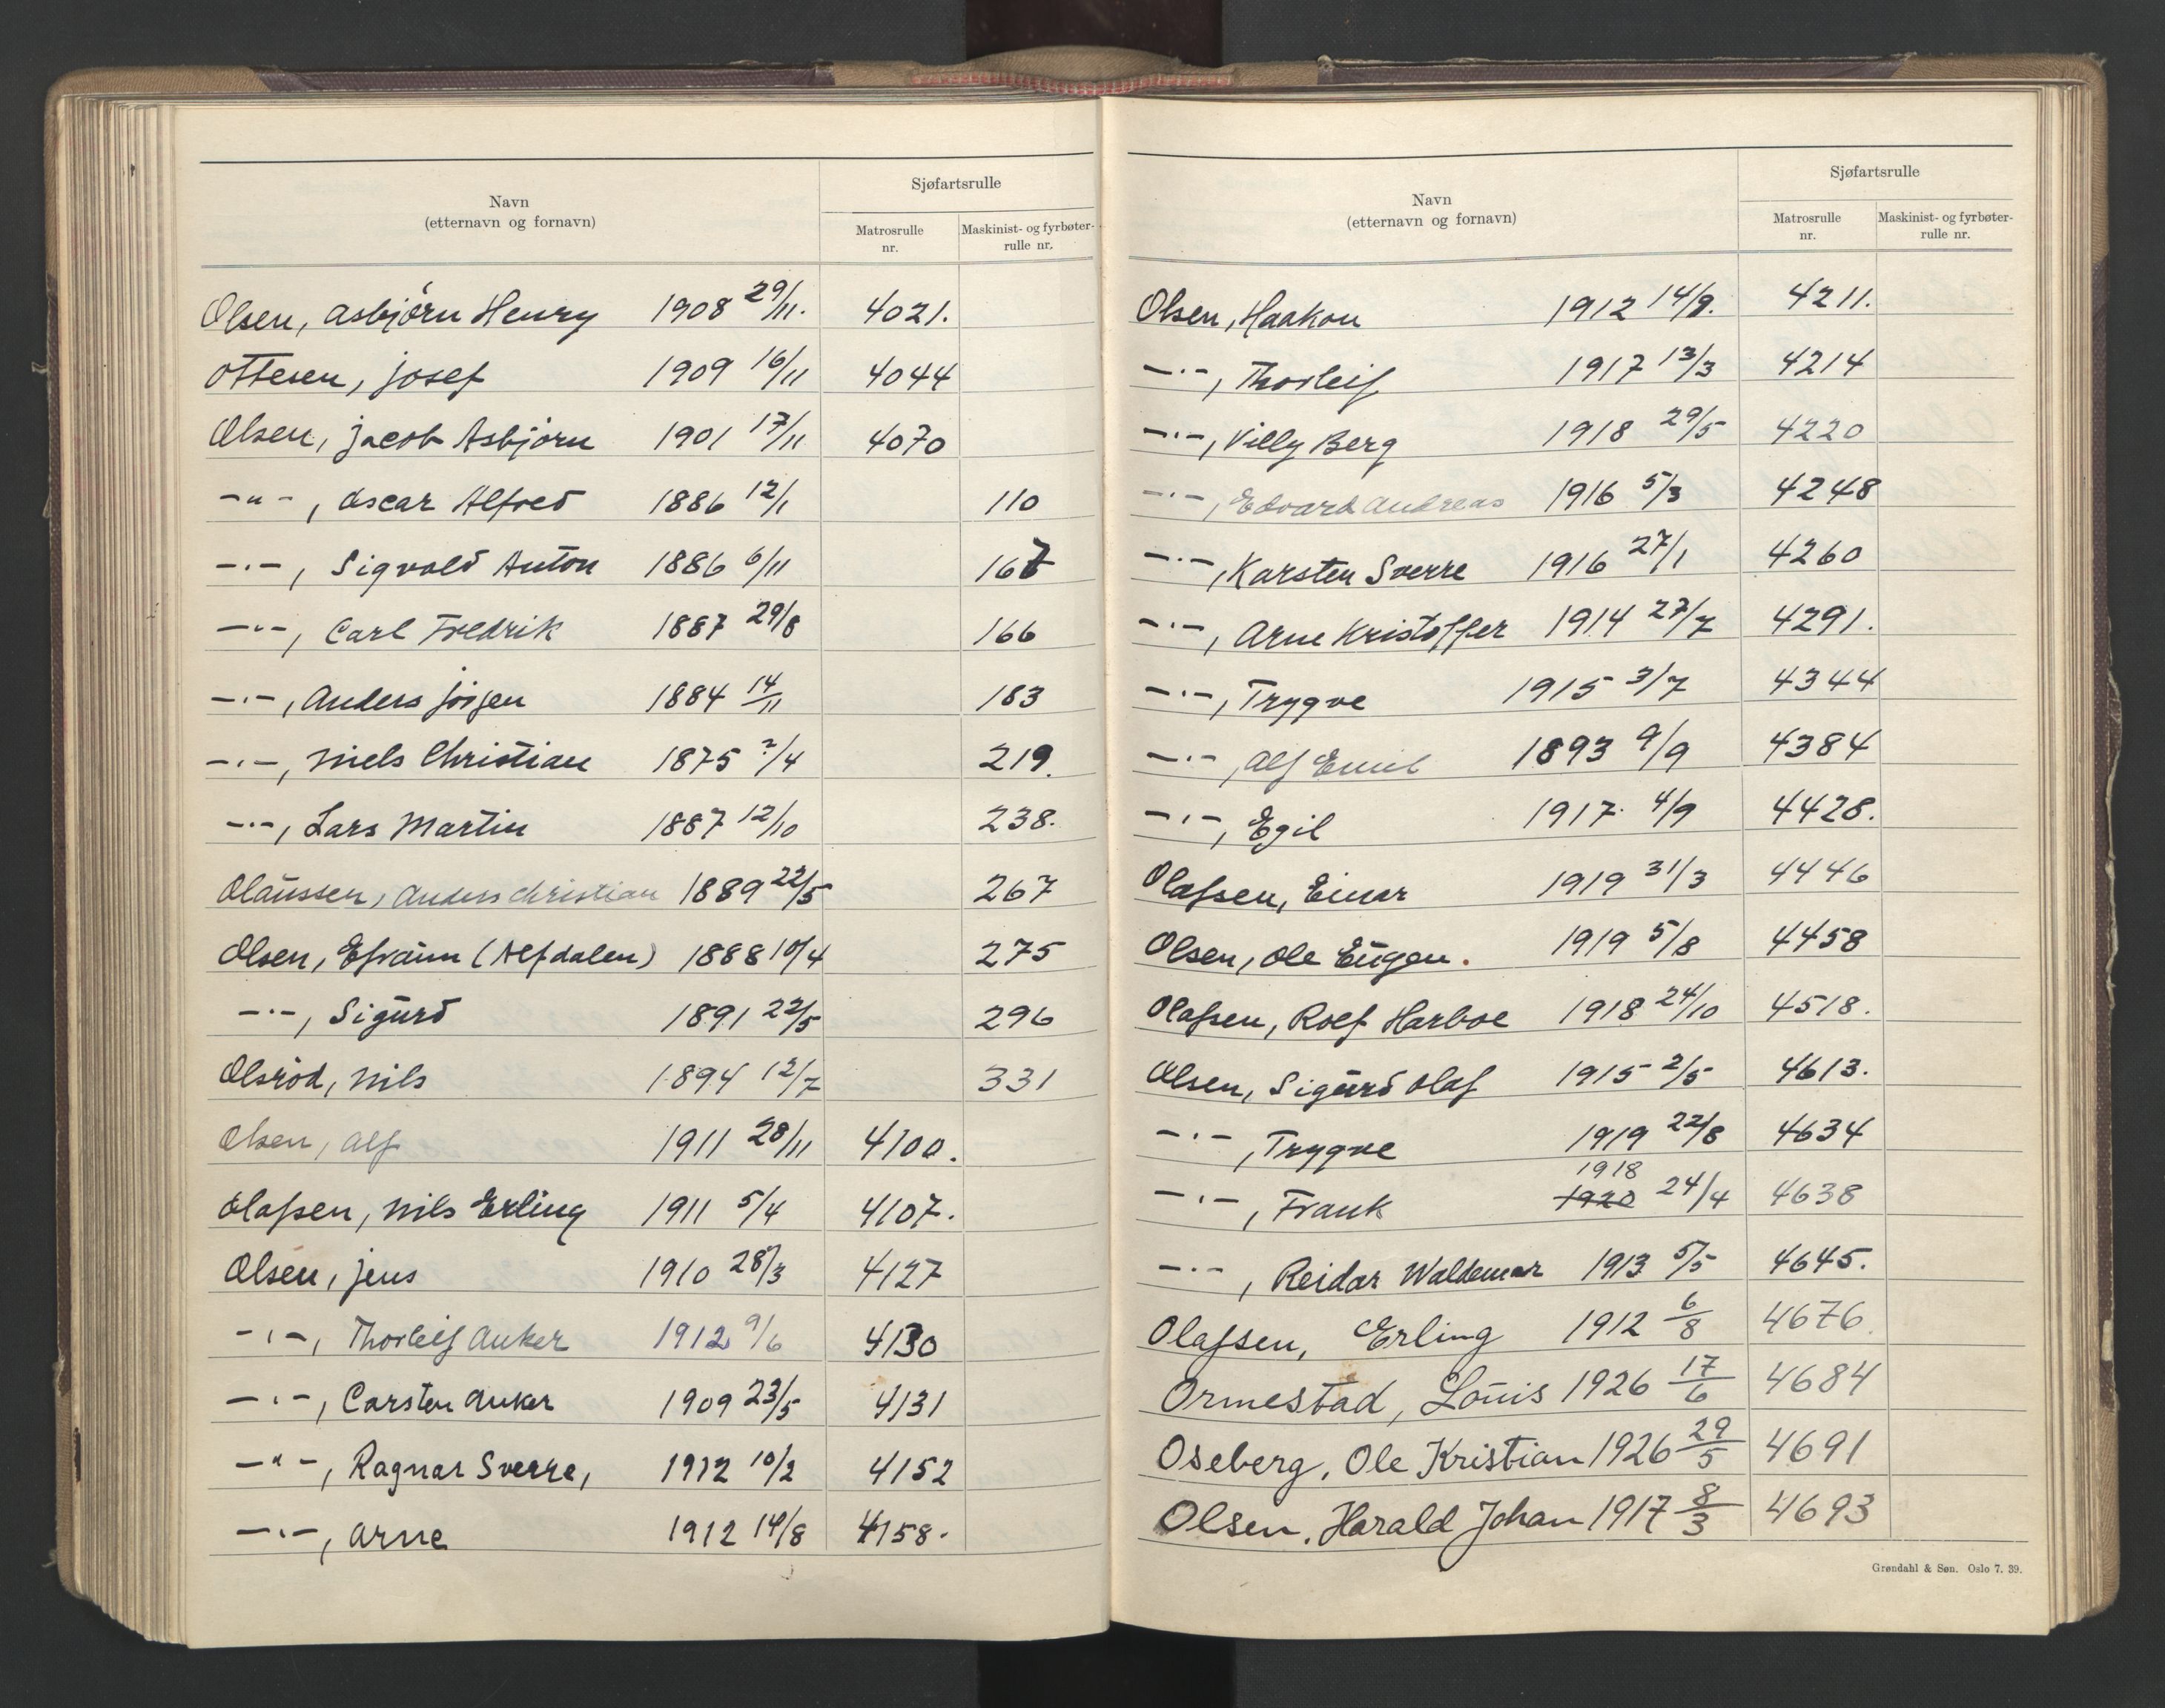 Navn
(etternavn og fornavn)
Sjøfartsrulle
Matrosrulle nr.
Maskinist- og fyrbøter-rulle nr.
Olsen, Asbjörn Henry 1908 29/11. 4021.
Ottesen, Josef 1909 16/11 4044
Olsen, Jacob Asbjörn 1901 17/11 4070
-"-, Oscar Alfred 1886 12/1 110
-"-, Sigvald Anton 1886 6/11 167
-"-, Carl Fredrik 1887 29/8 166
-"-, Anders Jörgen 1884 14/11 183
-"-, Niels Christian 1875 ?/4 219.
-"-, Lars Martin 1887 12/10 238.
Olaussen, Anders Christian 1889 22/5 267
Olsen, Efraim (Alfdalen) 1888 10/4 275
-"-, Sigurd 1891 22/5 296
Olsröd, Nils 1894 12/7 331
Olsen, Alf 1911 28/11 4100.
Olafsen, Nils Erling 1911 5/4 4107.
Olsen, Jens 1910 28/3 4127
-"-, Thorleif Anker 1912 9/6 4130
-"-, Carsten Anker 1909 23/5 4131
-"-, Ragnar Sverre, 1912 10/2 4152
-"-, Arne 1912 14/8 4158.
Navn
(etternavn og fornavn)
Sjøfartsrulle
Matrosrulle nr.
Maskinist- og fyrbøter-rulle nr.
Olsen, Haakon 1912 14/9. 4211.
-"-, Thorleif 1917 13/3 4214
-"-, Villy Berg 1918 29/5 4220
-"-, Edvard Andreas 1916 5/3 4248
-"-, Karsten Sverre 1916 27/1 4260
-"-, Arne Kristoffer 1914 27/7 4291.
-"-, Trygve 1915 3/7 4344
-"-, Alf Emil 1893 9/9 4384
-"-, Egil 1917 4/9 4428.
Olafsen, Einar 1919 31/3 4446
Olsen, Ole Eugen. 1919 5/8 4458
Olafsen, Rolf Harboe 1918 24/10 4518.
Olsen, Sigurd Olaf 1915 2/5 4613.
-"-, Trygve 1919 22/8 4634
1918
-"-, Frank 1920 24/4 4638
-"-, Reidar Waldemar 1913 5/5 4645.
Olafsen, Erling 1912 6/8 4676
Ormestad, Louis 1926 17/6 4684
Oseberg, Ole Kristian 1926 29/5 4691
Olsen, Harald Johan 1917 8/3 4693
Grøndahl & Søn. Oslo 7. 39.